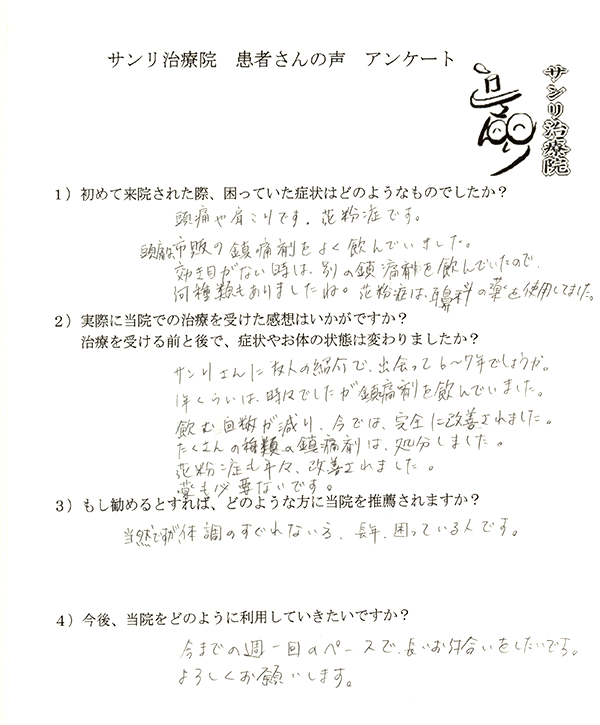 サンリ治療院 患者さんの声 アンケート
サンリ治療院
1）初めて来院された際、困っていた症状はどのようなものでしたか？
頭痛や肩こりです。花粉症です。
頭痛は市販の鎮痛剤をよく飲んでいました。
効き目がない時は、別の鎮痛剤を飲んでいたので、
何種類もありましたね。花粉症は、耳鼻科の薬を使用してました。
2）実際に当院での治療を受けた感想はいかがですか？
治療を受ける前と後で、症状やお体の状態は変わりましたか？
サンリさんに友人の紹介で、出会って6〜7年でしょうか。
1年くらいは、時々でしたが鎮痛剤を飲んでいました。
飲む回数が減り、今では、完全に改善されました。
たくさんの種類の鎮痛剤は、処分しました。
花粉症も年々、改善されました。
薬も必要ないです。
3）もし勧めるとすれば、どのような方に当院を推薦されますか？
当然ですが体調のすぐれない方、長年、困っている人です。
4）今後、当院をどのように利用していきたいですか？
今までの週一回のペースで、長いお付合いをしたいです。
よろしくお願いします。